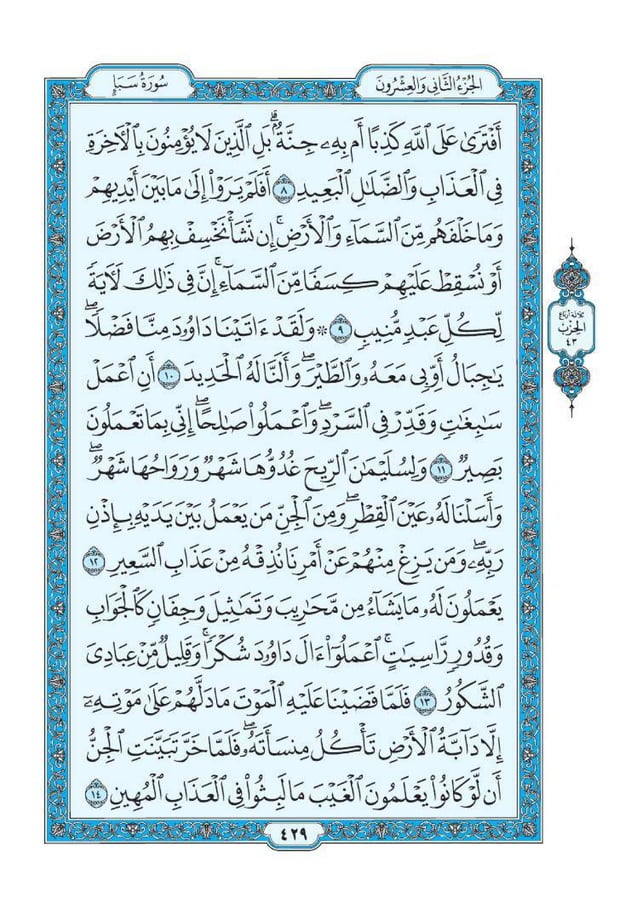 الجُزْءُ الثَّانِي وَالعِشْرُونَ
سُورَةُ سَبَإٍ
أَفْتَرَىٰ عَلَى ٱللَّهِ كَذِبًا أَم بِهِۦ جِنَّةٌۢۗ بَلِ ٱلَّذِينَ لَا يُؤْمِنُونَ بِٱلْأَخِرَةِ
فِى ٱلْعَذَابِ وَٱلضَّلَٰلِ ٱلْبَعِيدِ ٨ أَفَلَمْ يَرَوْا۟ إِلَىٰ مَا بَيْنَ أَيْدِيهِمْ
وَمَا خَلْفَهُم مِّنَ ٱلسَّمَآءِ وَٱلْأَرْضِۚ إِن نَّشَأْ نَخْسِفْ بِهِمُ ٱلْأَرْضَ
أَوْ نُسْقِطْ عَلَيْهِمْ كِسَفًا مِّنَ ٱلسَّمَآءِۚ إِنَّ فِى ذَٰلِكَ لَأٓيَةً
لِّكُلِّ عَبْدٍ مُّنِيبٍ ٩ ۞ وَلَقَدْ ءَاتَيْنَا دَاوُۥدَ مِنَّا فَضْلًاۖ
يَٰجِبَالُ أَوِّبِى مَعَهُۥ وَٱلطَّيْرَۖ وَأَلَنَّا لَهُ ٱلْحَدِيدَ ١٠ أَنِ ٱعْمَلْ
سَٰبِغَٰتٍ وَقَدِّرْ فِى ٱلسَّرْدِۖ وَٱعْمَلُوا۟ صَٰلِحًاۖ إِنِّى بِمَا تَعْمَلُونَ
بَصِيرٌ ١١ وَلِسُلَيْمَٰنَ ٱلرِّيحَ غُدُوُّهَا شَهْرٌ وَرَوَاحُهَا شَهْرٌۖ
وَأَسَلْنَا لَهُۥ عَيْنَ ٱلْقِطْرِۖ وَمِنَ ٱلْجِنِّ مَن يَعْمَلُ بَيْنَ يَدَيْهِ بِإِذْنِ
رَبِّهِۦۖ وَمَن يَزِغْ مِنْهُمْ عَنْ أَمْرِنَا نُذِقْهُ مِنْ عَذَابِ ٱلسَّعِيرِ ١٢
يَعْمَلُونَ لَهُۥ مَا يَشَآءُ مِن مَّحَٰرِيبَ وَتَمَٰثِيلَ وَجِفَانٍ كَٱلْجَوَابِ
وَقُدُورٍ رَّاسِيَٰتٍۚ ٱعْمَلُوٓا۟ ءَالَ دَاوُۥدَ شُكْرًاۚ وَقَلِيلٌ مِّنْ عِبَادِىَ
ٱلشَّكُورُ ١٣ فَلَمَّا قَضَيْنَا عَلَيْهِ ٱلْمَوْتَ مَا دَلَّهُمْ عَلَىٰ مَوْتِهِۦٓ
إِلَّا دَآبَّةُ ٱلْأَرْضِ تَأْكُلُ مِنسَأَتَهُۥۖ فَلَمَّا خَرَّ تَبَيَّنَتِ ٱلْجِنُّ
أَن لَّوْ كَانُوا۟ يَعْلَمُونَ ٱلْغَيْبَ مَا لَبِثُوا۟ فِى ٱلْعَذَابِ ٱلْمُهِينِ ١٤
ثلاثة أرباع
الحزب
٤٣
٤٢٩